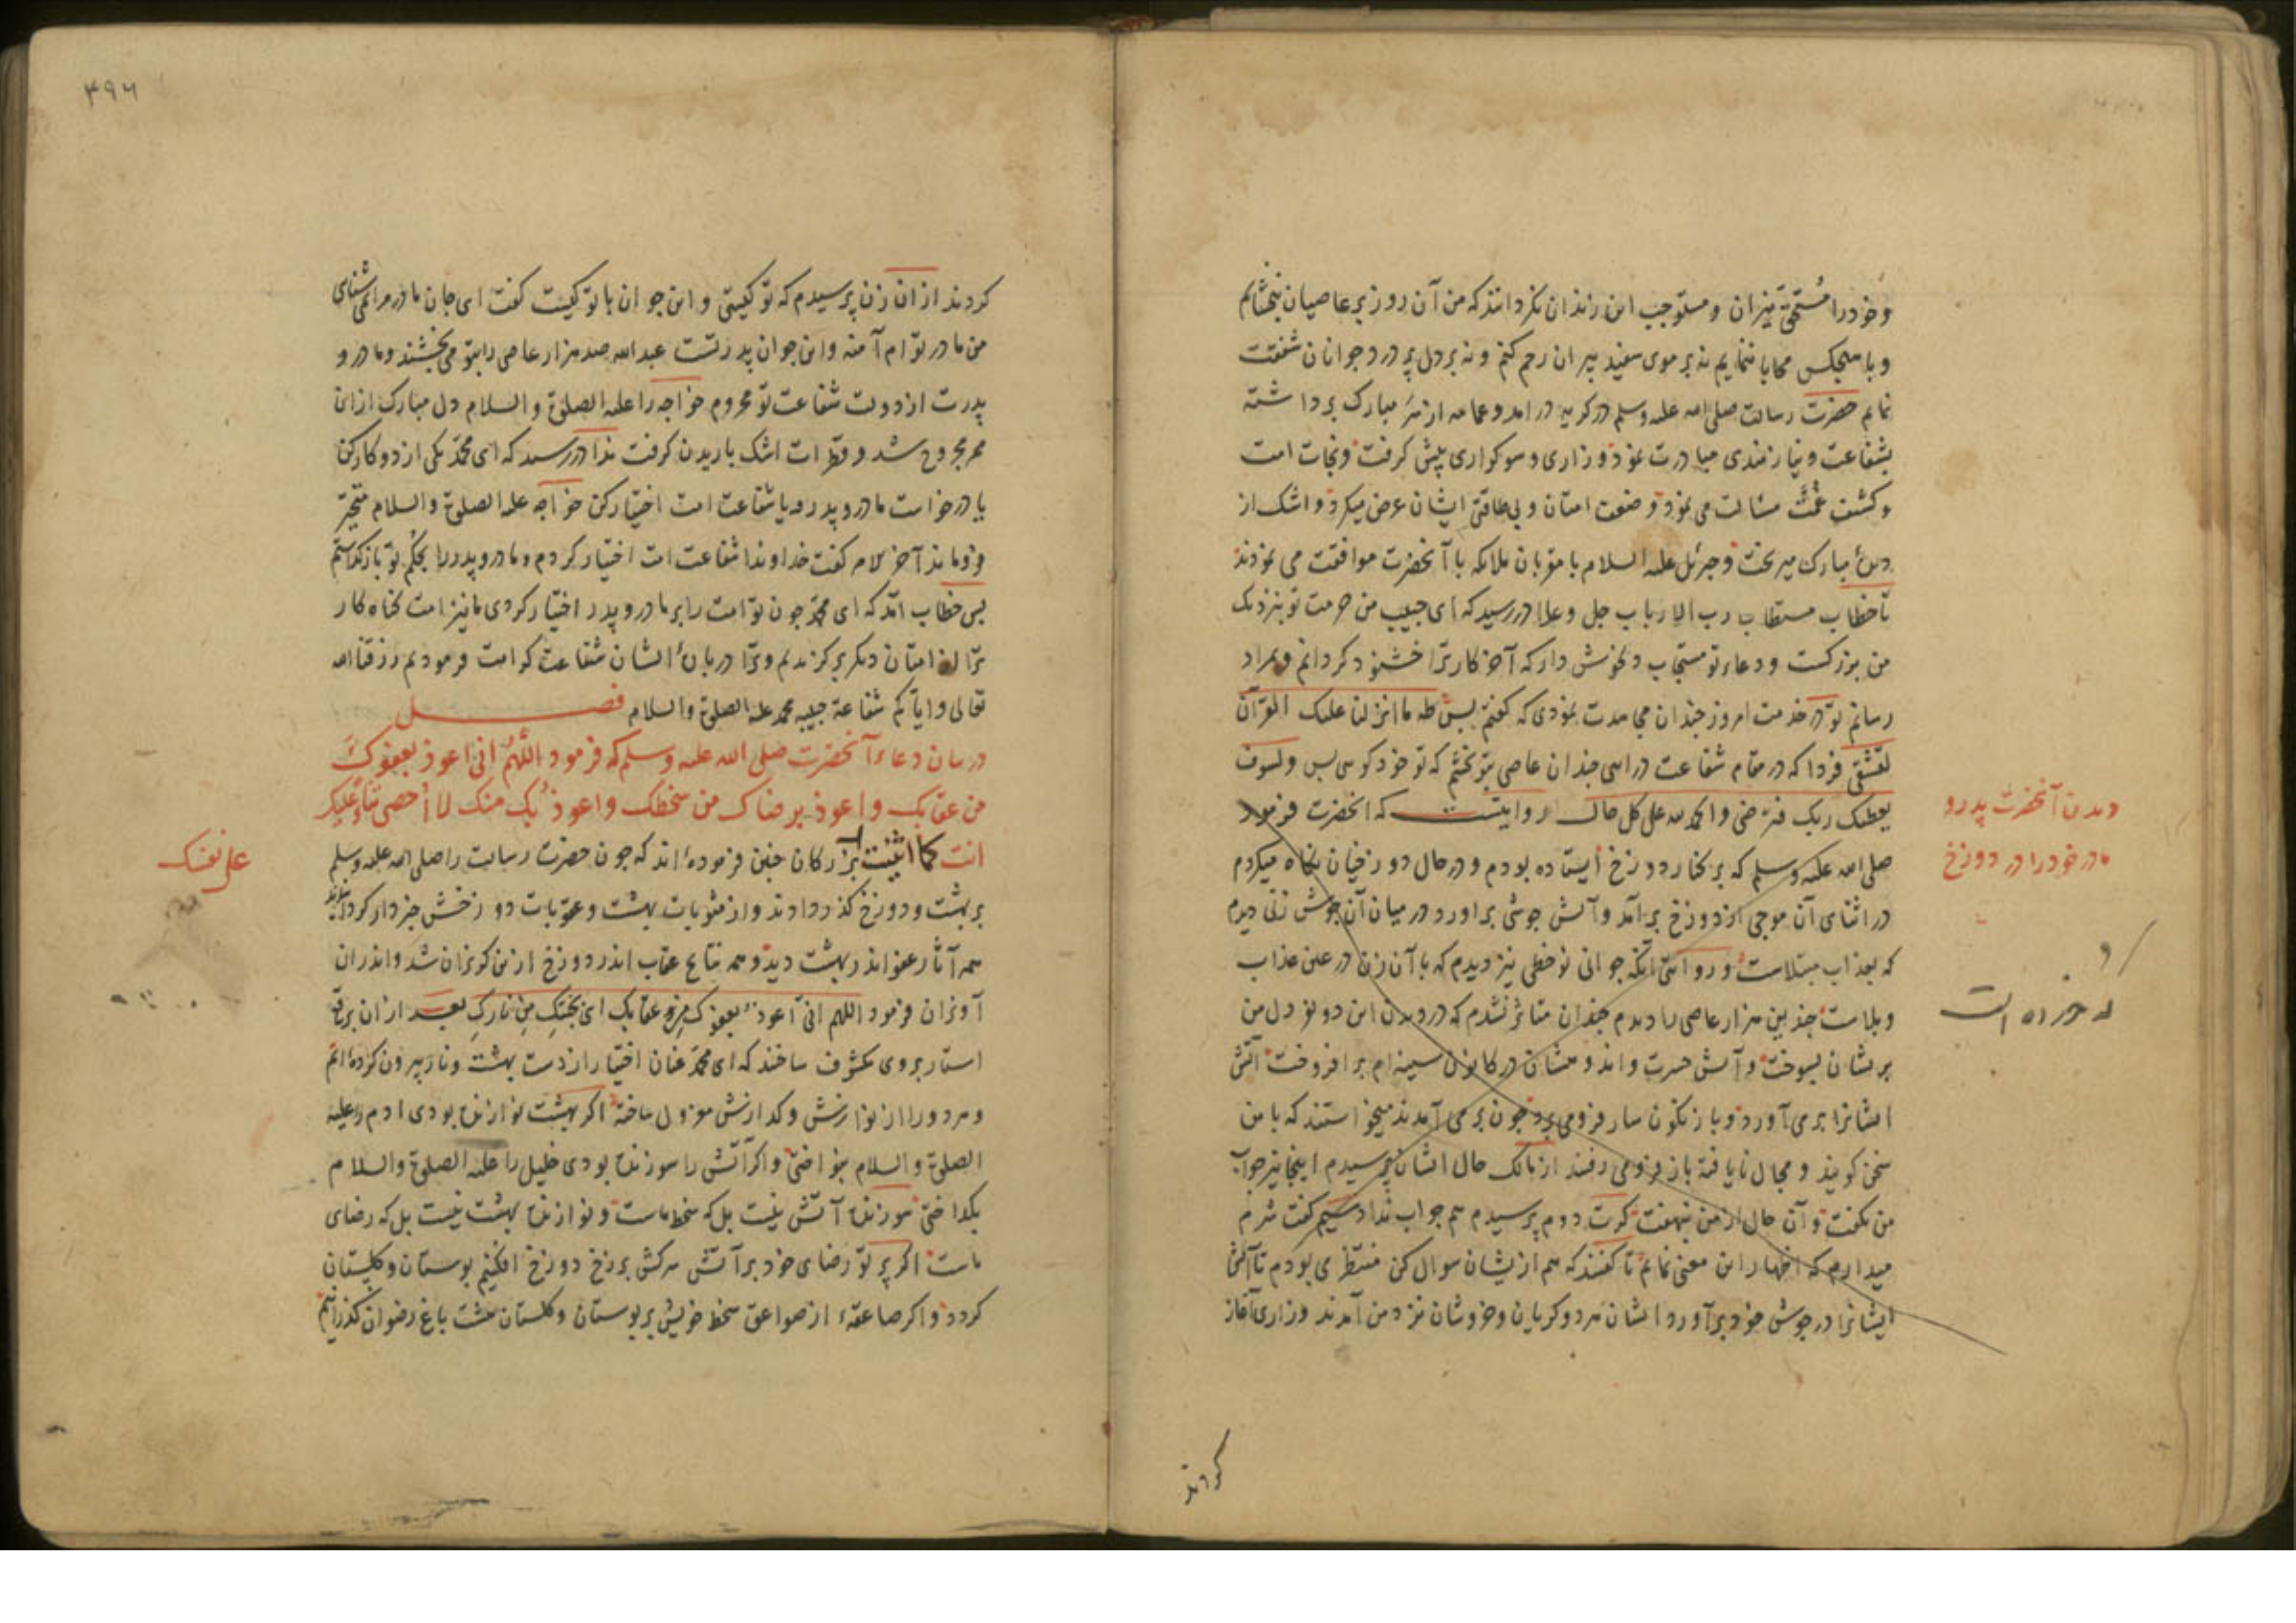 وخود را مستحق نیران و مستوجب این زندان نکردانند که من آن روز بر عاصیان نبخشایم
و با هیچکس محابا ننمایم نه بر موی سفید پیران رحم کنم و نه بر دل پر درد جوانان شفقت
نمایم حضرت رسالت صلی الله علیه وسلم در کریه در امد و عمامه از سر مبارک برداشته
بشفاعت و نیازمندی مبادرت نمود و زاری و سوکواری پیش کرفت و نجات امت
و کشف غمت مسالت می نمود و ضعف امتان و بی طاقتی ایشان عرض میکرد و اشک از
مبارک میریخت و جبرئیل علیه السلام با مقربان ملایکه با آنحضرت موافقت می نمودند
تا خطاب مستطاب رب الارباب جل و علا در رسید که ای حبیب من حرمت تو بنزدیک
من بزرکست و دعاء تو مستجاب دلخوش دار که آخر کار ترا خشنود کردانم و بمراد
رسانم تو در خدمت امروز چندان مجاهدت نمودی که کفتم بس طه ما انزلنا علیک القرآن
لتشقی فردا که در مقام شفاعت درایی چندان عاصی بتو بخشم که تو خود کویی بس ولسوف
یعطیک ربک فترضی والحمد لله علی کل حال روایتست که انحضرت فرمود
صلی الله علیه وسلم که بر کنار دوزخ ایستاده بودم و در حال دوزخیان نکاه میکردم
در اثنای آن موجی از دوزخ برآمد و آتش جوشی براورد در میان آن جوش زنی دیدم
که بعذاب مبتلاست و روایتی آنکه جوانی نوخطی نیز دیدم که با آن زن در عین عذاب
و بلاست چندین هزار عاصی را دیدم چندان متاثر نشدم که در دیدن این دو نفر دل من
بریشان بسوخت و آتش حسرت و اندوهشان در کانون سینه ام برافروخت آتش
ایشانرا برمی آورد و باز نکون سار فرو می برد چون برمی آمدند میخواستند که با من
سخن کویند و مجال نایافته باز فرو می رفتند از مالک حال ایشان پرسیدم اینجا نیز جواب
من نکفت و آن حال از من نهفت کرت دوم پرسیدم هم جواب نداد سیم کفت شرم
میدارم که اظهار این معنی نمایم تا کفتند که هم از ایشان سوال کن منتظر می بودم تا آتش
ایشانرا در جوش خود برآورد ایشان هردو کریان و خروشان نزد من آمدند و زاری آغاز
دیدن آنحضرت پدر و
مادر خود را در دوزخ
کردند
۴۹۶
کردند ازان زن پرسیدم که تو کیستی و این جوان با تو کیست کفت ای جان مادر مرا نمی شناسی
من مادر توام آمنه و این جوان پدر تست عبدالله صد هزار عاصی را بتو می بخشند و مادر و
پدرت از دولت شفاعت تو محروم خواجه را علیه الصلوة والسلام دل مبارک ازان
مجروح شد و قطرات اشک باریدن کرفت ندا در رسید که ای محمد یکی از دو کار کن
یا درخواست مادر و پدر و یا شفاعت امت اختیار کن خواجه علیه الصلوة والسلام متحیر
فروماند آخر کفت خداوندا شفاعت امت اختیار کردم و مادر و پدر را بحکم تو بازکذاشتم
پس خطاب امد که ای محمد چون تو امت را بر مادر و پدر اختیار کردی ما نیز امت کناه کار
ترا از امتان دیکر برکزیدیم و ترا درباره ایشان شفاعت کرامت فرمودیم رزقنا الله
تعالی وایاکم شفاعة حبیبه محمد علیه الصلوة والسلام فصل
در بیان دعاء آنحضرت صلی الله علیه وسلم که فرمود اللهم انی اعوذ بعفوک
من عقابک واعوذ برضاک من سخطک واعوذ بک منک لا احصی ثناء علیک
انت کما اثنیت بزرکان چنین فرموده اند که چون حضرت رسالت را صلی الله علیه وسلم
بر بهشت و دوزخ کذر دادند و از مثوبات بهشت و عقوبات دوزخش خبردار کردانیدند
همه آثار عفو اندر بهشت دید و همه نتایج عقاب اندر دوزخ ازین کریزان شد و اندران
آویزان فرمود اللهم انی اعوذ بعفوک من عقابک ای بجنتک من نارک بعد ازان برتو
استار بروی مکشوف ساختند که ای محمد عنان اختیار از دست بهشت و نار بیرون کرده ایم
و هر دو را از نوازش و کدازش معزول ساخته اکر بهشت نوازنده بودی ادم را علیه
الصلوة والسلام بنواختی و اکر آتش را سوزنده بودی خلیل را علیه الصلوة والسلام
بکداختی سوزنده آتش نیست بل که سخط ماست و نوازنده بهشت نیست بل که رضای
ماست اکر پرتو رضای خود بر آتش سرکش برزخ دوزخ افکنیم بوستان و کلستان
کردد و اکر صاعقهٔ از صواعق سخط خویش بر بوستان و کلستان هشت باغ رضوان کذرانیم
علی نفسک